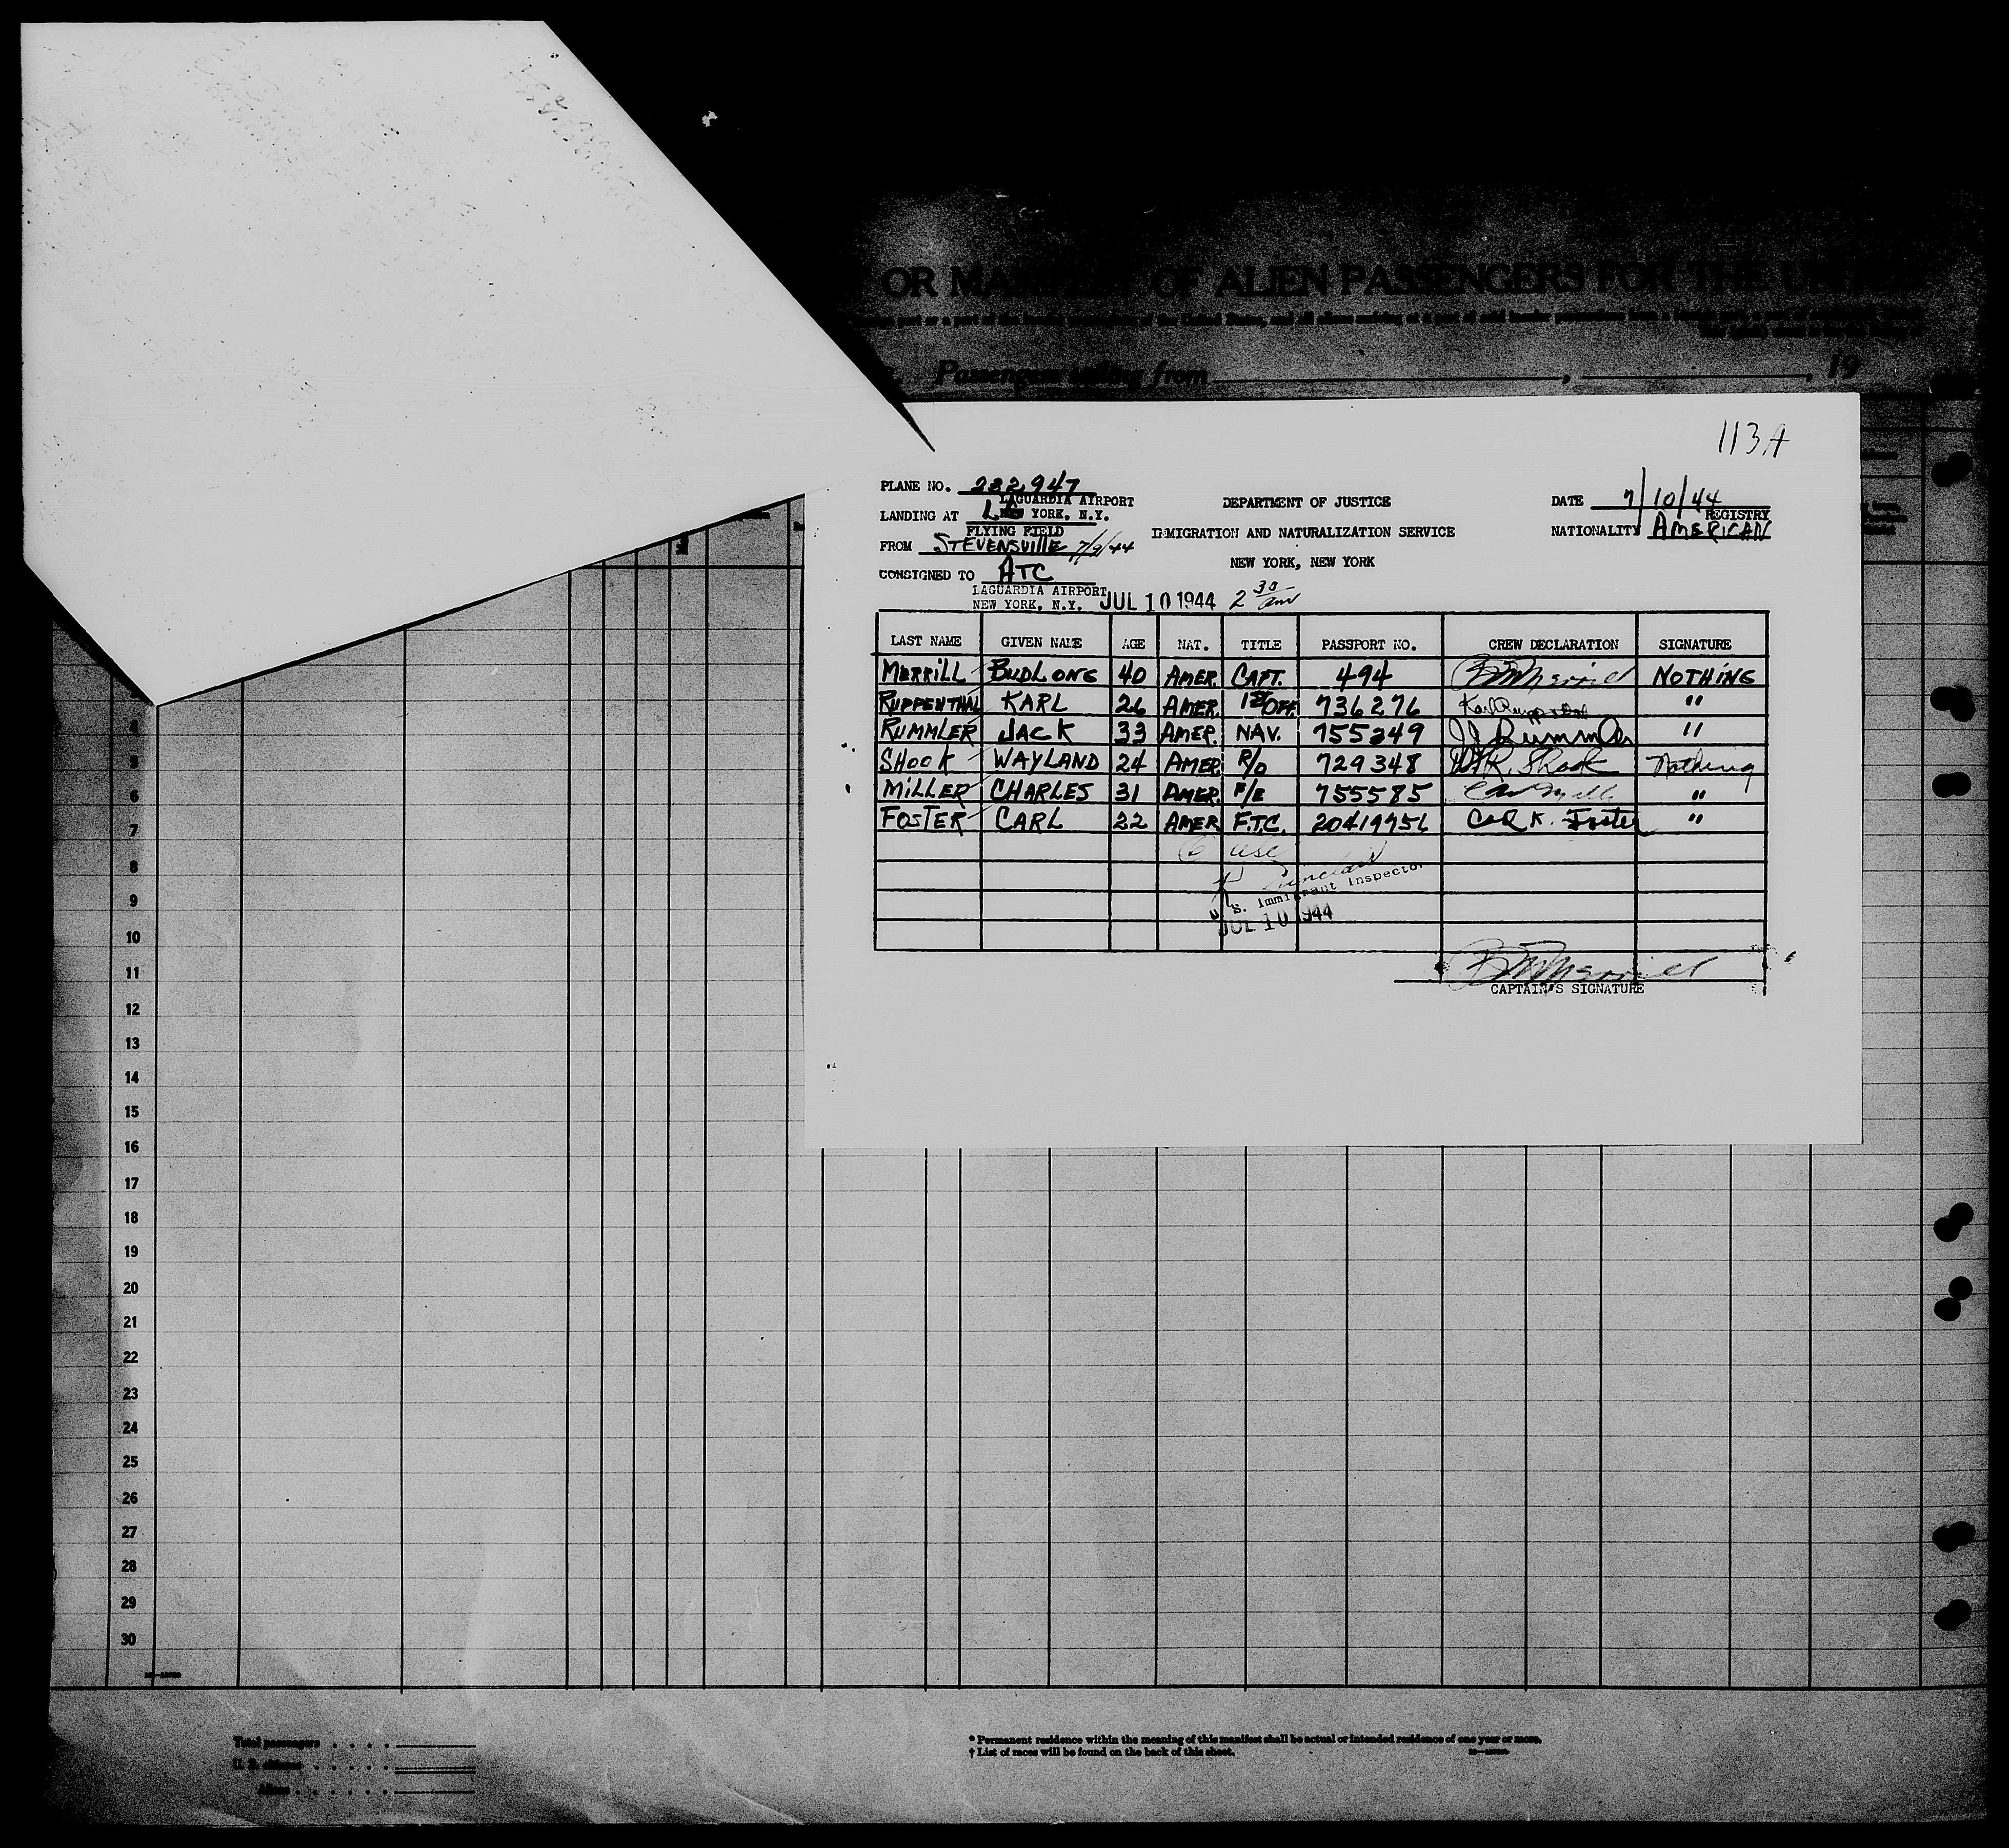 OR MANIFEST OF ALIEN PASSENGERS FOR THE UNITED
Passengers sailing from , , 19
113A
PLANE NO. 232947
LAGUARDIA AIRPORT
LANDING AT LG YORK, N.Y.
FLYING FIELD
FROM STEVENSVILLE 7/9/44
CONSIGNED TO ATC
LAGUARDIA AIRPORT
NEW YORK, N.Y. JUL 10 1944 2 30 am
DEPARTMENT OF JUSTICE
IMMIGRATION AND NATURALIZATION SERVICE
NEW YORK, NEW YORK
DATE 7/10/44
REGISTRY
NATIONALITY AMERICAN
LAST NAME GIVEN NAME AGE NAT. TITLE PASSPORT NO. CREW DECLARATION SIGNATURE
MERRILL BUDLONG 40 AMER. CAPT. 494 B M Merrill NOTHING
RUPPENTHAL KARL 26 AMER. 1st OFF. 736276 Karl Ruppenthal "
RUMMLER JACK 33 AMER. NAV. 755349 JJ Rummler "
SHOOK WAYLAND 24 AMER. R/O 729348 W.R. Shook Nothing
MILLER CHARLES 31 AMER. F/E 755585 "
FOSTER CARL 22 AMER F.T.C. 20419956 Carl K. Foster "
6 USC
U.S. Immigrant Inspector
JUL 10 1944
B M Merrill
CAPTAIN'S SIGNATURE
4
5
6
7
8
9
10
11
12
13
14
15
16
17
18
19
20
21
22
23
24
25
26
27
28
29
30
Total passengers . . . .
U. S. citizens . . . . .
Aliens . . . . . .
* Permanent residence within the meaning of this manifest shall be actual or intended residence of one year or more.
† List of races will be found on the back of this sheet.